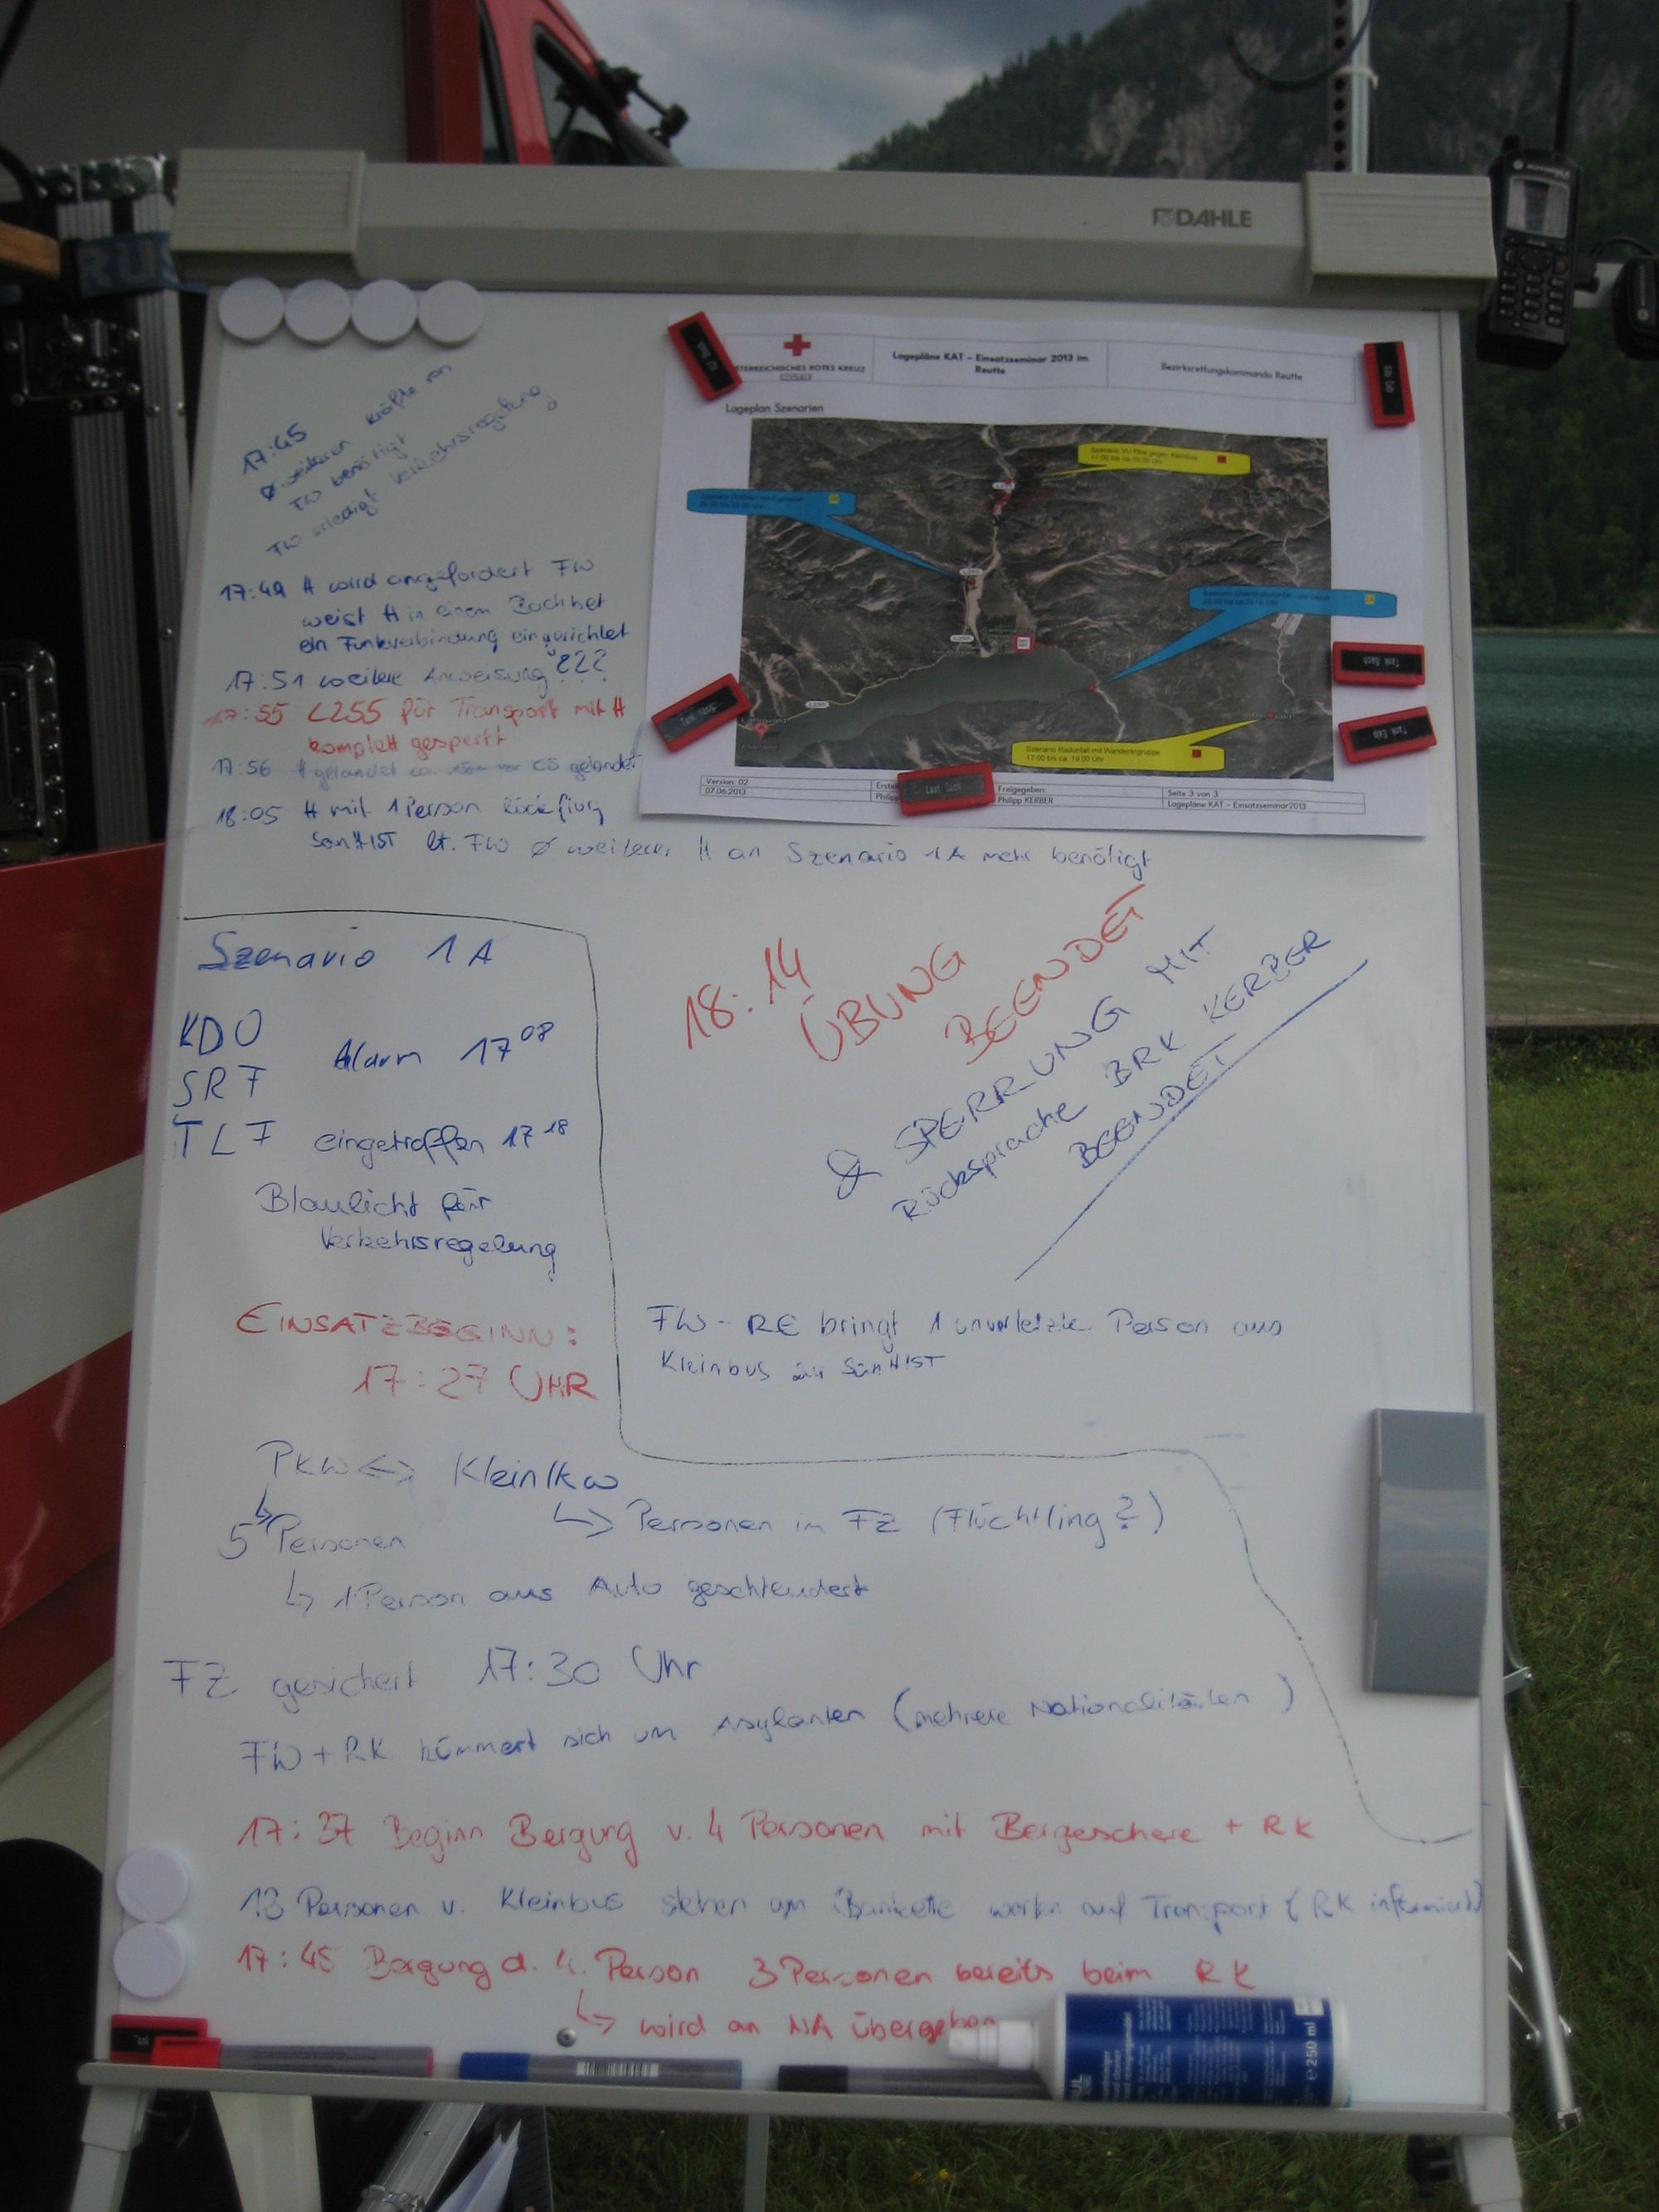 DAHLE
RUS
ÖSTERREICHISCHES ROTES KREUZ
Lagepläne KAT – Einsatzseminar 2013 im
Reutte
Bezirksrettungskommando Reutte
Lageplan Szenarien
Szenario VU Pkw gegen Kleinbus
17:00 bis ca 19:00 Uhr
Szenario Radunfall mit Wanderergruppe
17:00 bis ca. 19:00 Uhr
Version: 02
07.06.2013
Freigegeben:
Philipp KERBER
Seite 3 von 3
Lagepläne KAT – Einsatzseminar2013
Last Bach
Tank Bach
17:45
Ø weiteren Kräfte von
FW benötigt
FW erledigt Verkehrsregelung
17:49 H wird angefordert FW
weist H in einem Bachbet
ein Funkverbindung eingerichtet
17:51 weitere Anweisung ???
17:55 L255 für Transport mit H
komplett gesperrt
17:56 H gelandet ca. gelandet
18:05 H mit 1 Person Rückflug
SanHIST lt. FW Ø weiterer H an Szenario 1A mehr benötigt
Szenario 1A
KDO
SRF
TLF
Alarm 17 08
eingetroffen 17 18
Blaulicht für
Verkehrsregelung
EINSATZBEGINN:
17:27 UHR
18:14
ÜBUNG
BEENDET
& SPERRUNG MIT
Rücksprache BRK KERBER
BEENDET
FW - RE bringt 1 unverletzte Person aus
Kleinbus zur SanHIST
PKW <-> Kleinlkw
↳ 5 Personen
↳ Personen in FZ (Flüchtling?)
↳ 1 Person aus Auto geschleudert
FZ gesichert 17:30 Uhr
FW + RK kümmert sich um Asylanten (mehrere Nationalitäten)
17:37 Beginn Bergung v. 4 Personen mit Bergeschere + RK
13 Personen v. Kleinbus stehen am Bankette warten auf Transport (RK informiert)
17:45 Bergung d. 4. Person 3 Personen bereits beim RK
↳ wird an NA übergeben
250 ml